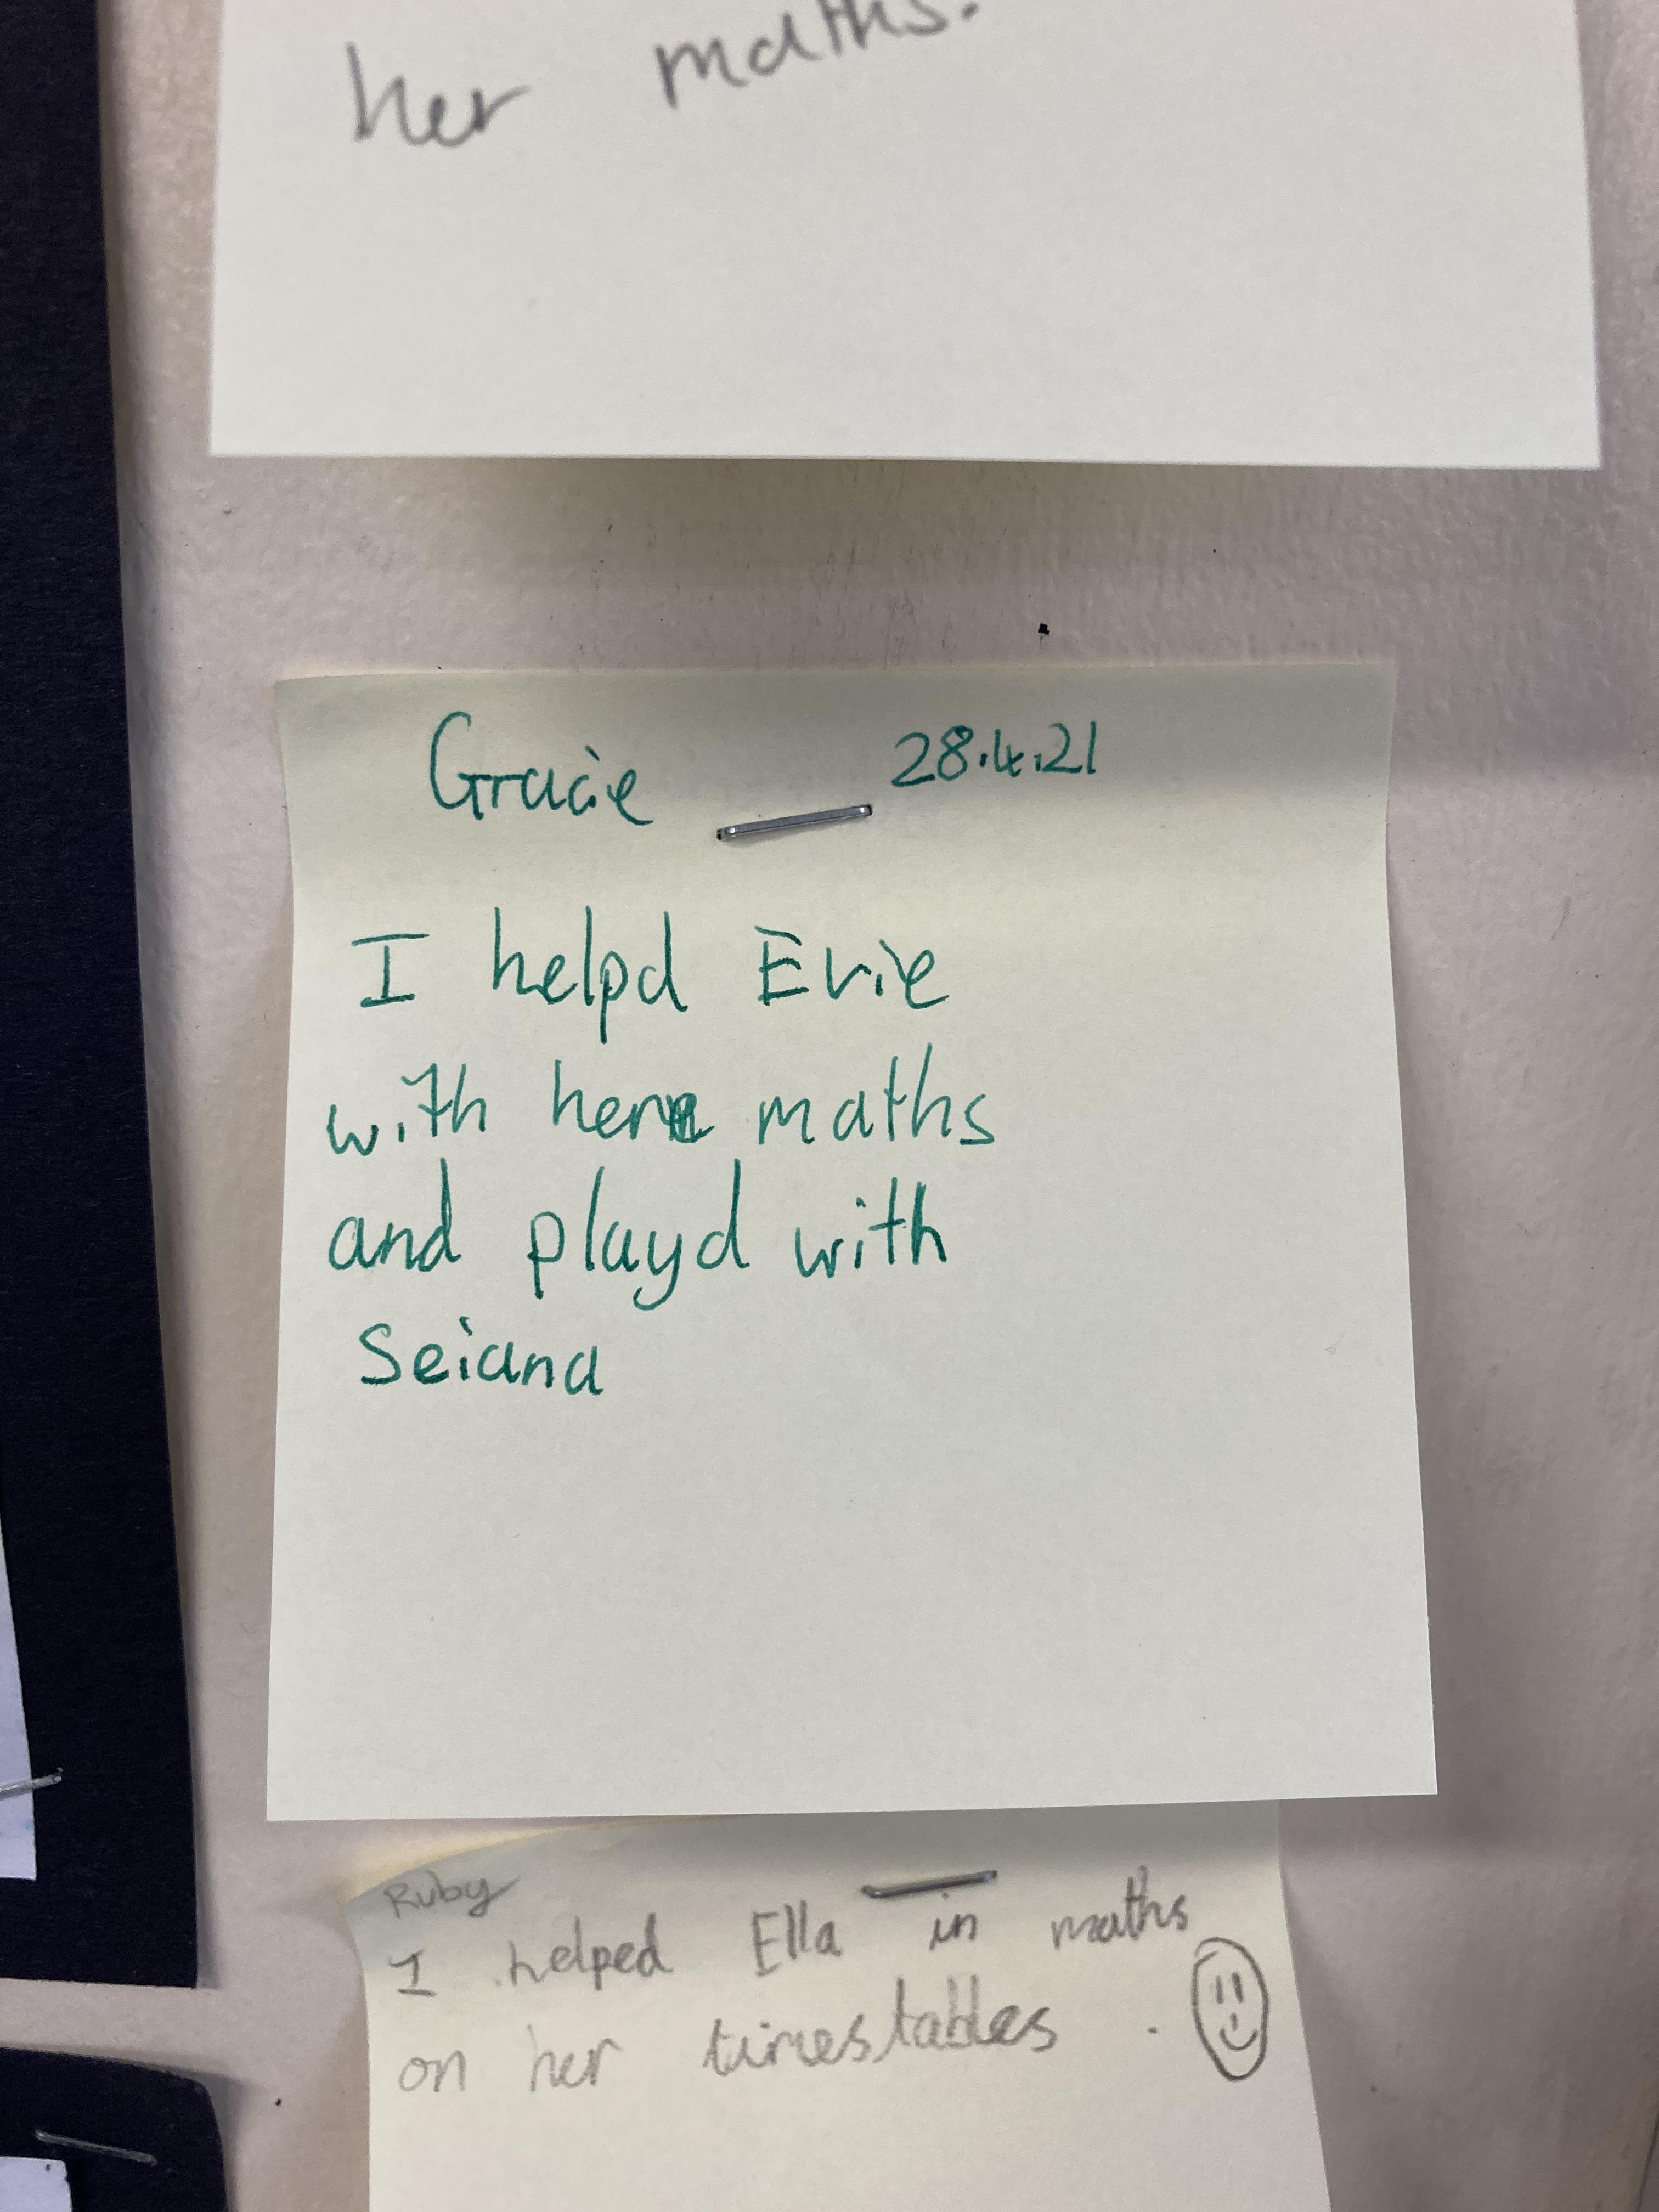 her maths.
Gracie 28.4.21
I helpd Evie
with her maths
and playd with
Seiana
Ruby
I helped Ella in maths
on her timestables .